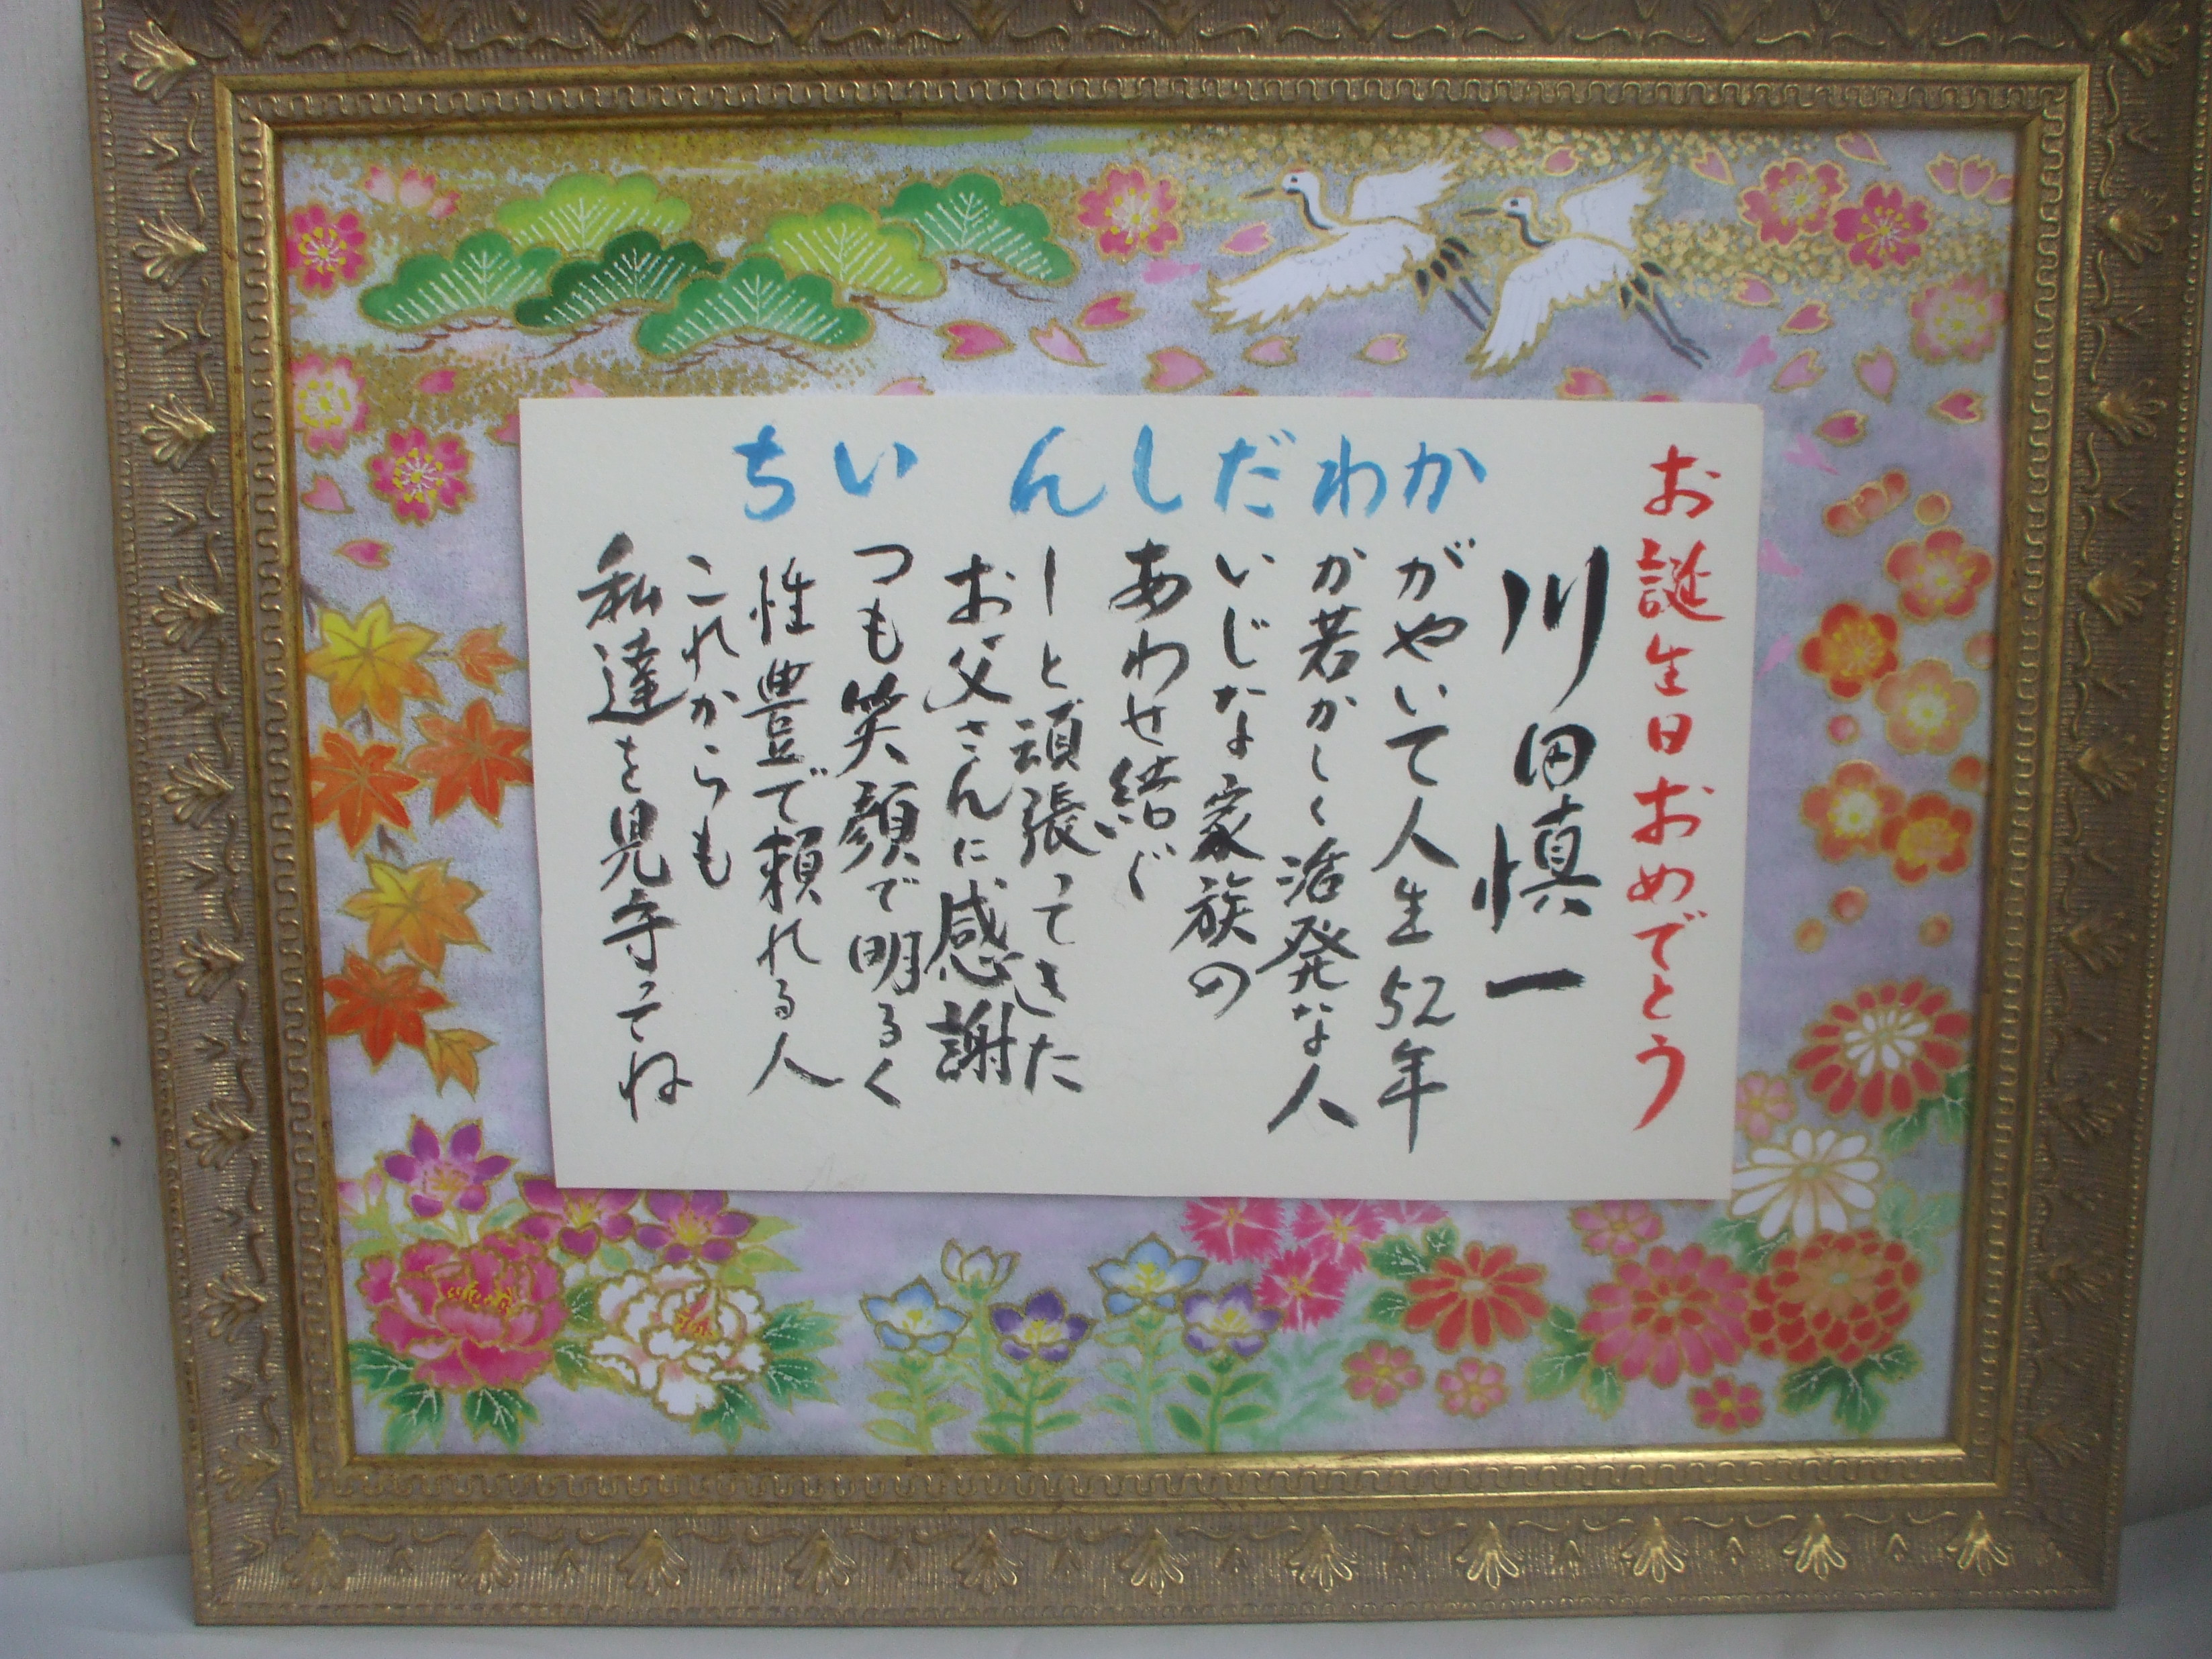 お誕生日おめでとう
川田慎一
かがやいて人生52年
わか若かしく活発な人
だいじな家族の
しあわせ結ぶ
んーと頑張ってきた
お父さんに感謝
いつも笑顔で明るく
ち性豊で頼れる人
これからも
私達を見守ってね